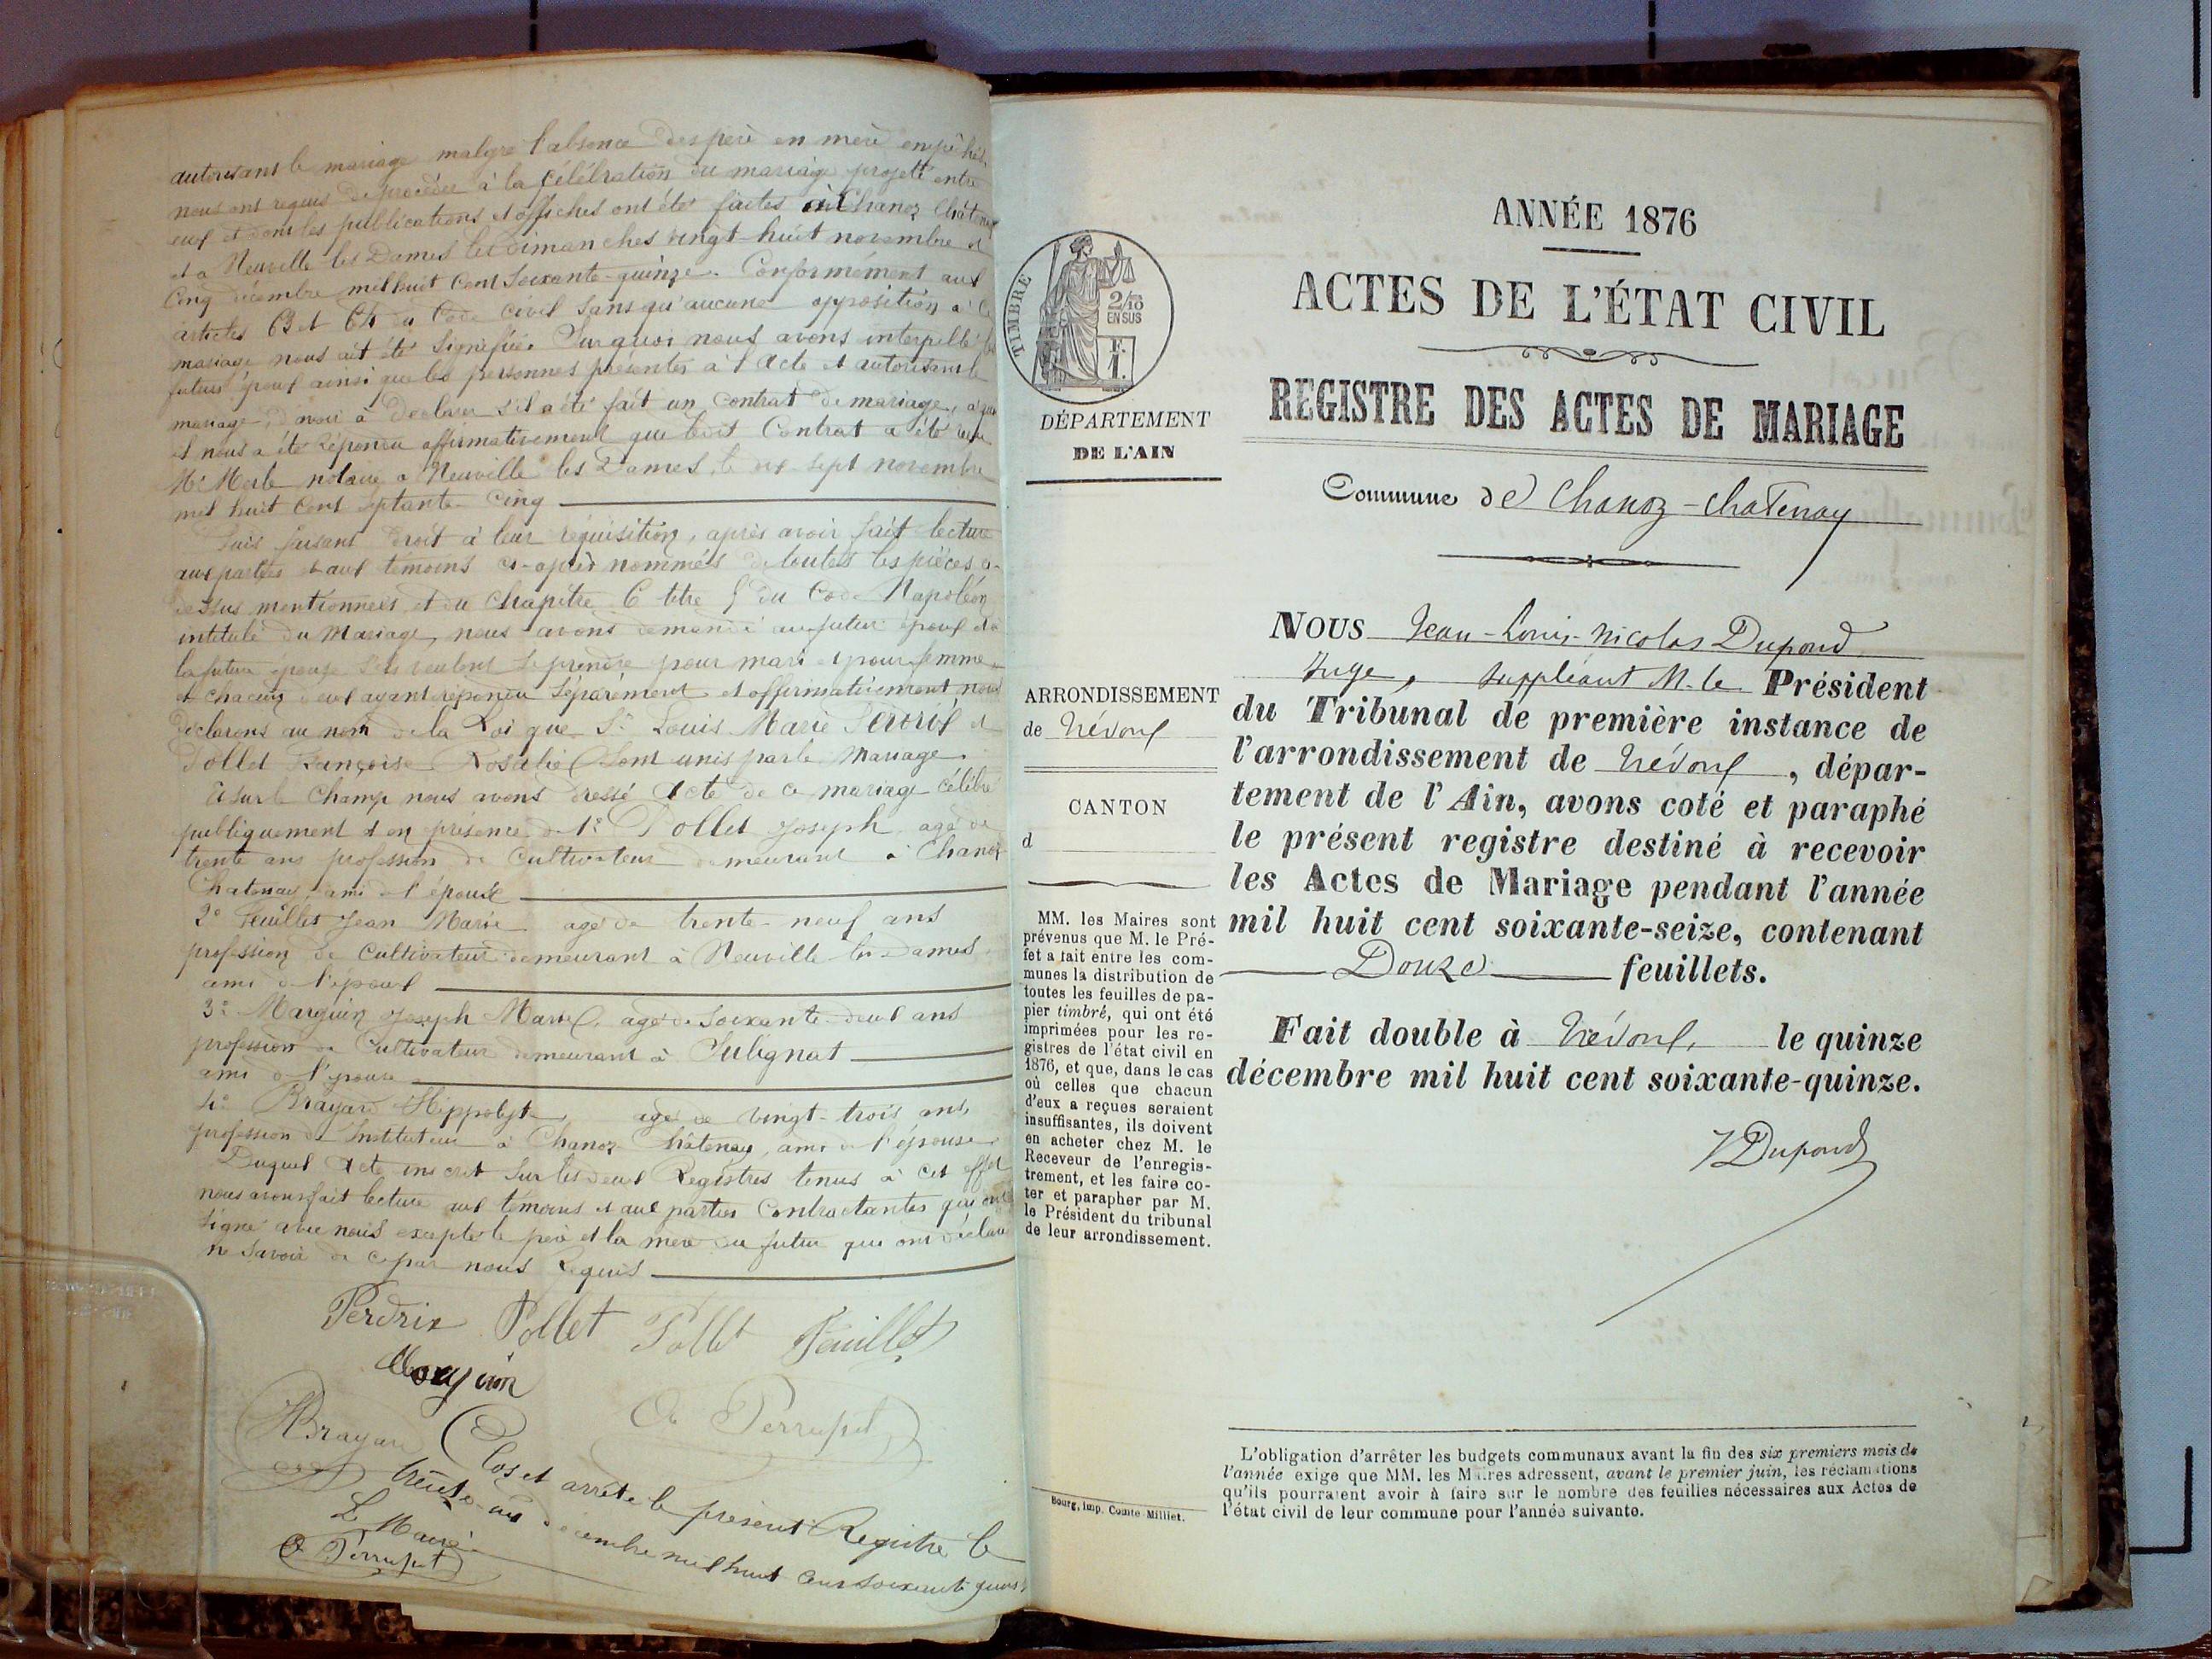 autorisant le mariage malgré l'absence des père en mère empêchés
nous ont requis de procéder à la célébration du mariage projeté entre
eux et dont les publications et affiches ont été faites à Chanoz Châtenay
et a Neuville les Dames les Dimanches vingt-huit novembre et
Cinq décembre mil huit Cent Soixante-quinze. Conformément aux
articles 63 et 64 du Code Civil Sans qu'aucune opposition à ce
mariage nous ait été Signifiée. Sur quoi nous avons interpellé les
futurs époux ainsi que les personnes présentes à l'Acte et autorisant le
mariage, d'avoir à Déclarer S'il a été fait un Contrat de mariage, a quoi
il nous a été Répondu affirmativement que ledit Contrat a été reçu
Me Merle notaire a Neuville les Dames, le dix-sept novembre
mil huit Cent Septante-Cinq
Puis faisant Droit à leur réquisition, après avoir fait lecture
aux parties et aux témoins ci-après nommés de toutes les pièces ci-
dessus mentionnées et du Chapitre 6 titre 5 du Code Napoléon
intitulé du Mariage, nous avons demandé au futur époux et à
la future épouse s'ils veulent se prendre pour mari et pour femme
et chacun d'eux ayant répondu Séparément et affirmativement nous
déclarons au nom de la Loi que Sr Louis Marie Perdrix et
Pollet Françoise Rosalie Sont unis par le Mariage.
Et sur le Champ nous avons dressé Acte de ce mariage célébré
publiquement et en présence de 1° Pollet Joseph, agé de
trente ans profession de Cultivateur demeurant à Chanoz
Chatenay, ami de l'épouse
2° Feuillet Jean Marie agé de trente-neuf ans
profession de Cultivateur demeurant à Neuville-les-Dames
ami de l'époux
3° Marguin Joseph Marie, agé de Soixante-deux ans
profession de Cultivateur demeurant à Sulignat
ami de l'époux
4° Brayard Hippolyte, agé de vingt-trois ans,
profession d'Instituteur à Chanoz-Châtenay, ami de l'épouse
Duquel Acte inscrit Sur les deux Registres tenus à cet effet
nous avons fait lecture aux témoins et aux parties Contractantes qui ont
signé avec nous excepté le père et la mère du futur qui ont déclaré
ne Savoir de ce par nous Requis
Perdrix Pollet Pollet Feuillet
Marguin
HBrayard Perrupit
Clos et arrêté le présent Registre le
trente-un décembre mil huit cent soixante quinze
Le Maire
ANNÉE 1876
ACTES DE L'ÉTAT CIVIL
REGISTRE DES ACTES DE MARIAGE
Commune de Chanoz-Chatenay
TIMBRE
2/10
EN SUS
F.
1.
DÉPARTEMENT
DE L'AIN
ARRONDISSEMENT
de Trévoux
CANTON
d
MM. les Maires sont
prévenus que M. le Pré-
fet a fait entre les com-
munes la distribution de
toutes les feuilles de pa-
pier timbré, qui ont été
imprimées pour les re-
gistres de l'état civil en
1876, et que, dans le cas
où celles que chacun
d'eux a reçues seraient
insuffisantes, ils doivent
en acheter chez M. le
Receveur de l'enregis-
trement, et les faire co-
ter et parapher par M.
le Président du tribunal
de leur arrondissement.
Bourg, imp. Comte-Milliet.
NOUS Jean-Louis-Nicolas Dupond
Juge, suppléant M. le Président
du Tribunal de première instance de
l'arrondissement de Trévoux, dépar-
tement de l'Ain, avons coté et paraphé
le présent registre destiné à recevoir
les Actes de Mariage pendant l'année
mil huit cent soixante-seize, contenant
Douze feuillets.
Fait double à Trévoux, le quinze
décembre mil huit cent soixante-quinze.
Dupond
L'obligation d'arrêter les budgets communaux avant la fin des six premiers mois de
l'année exige que MM. les Maires adressent, avant le premier juin, les réclamations
qu'ils pourraient avoir à faire sur le nombre des feuilles nécessaires aux Actes de
l'état civil de leur commune pour l'année suivante.